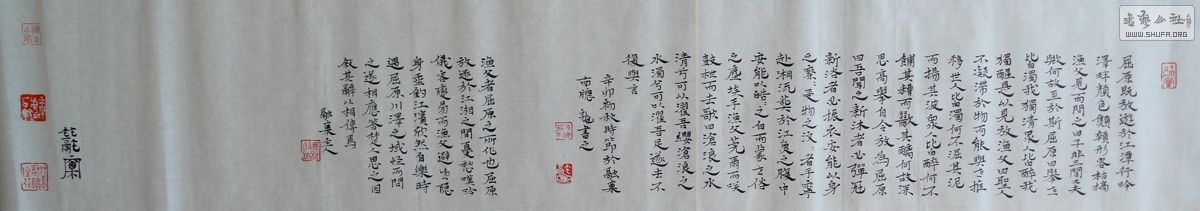 屈原既放遊於江潭行吟
澤畔顏色顦顇形容枯槁
漁父見而問之曰子非三閭大夫
與何故至於斯屈原曰舉世
皆濁我獨清眾人皆醉我
獨醒是以見放漁父曰聖人
不凝滯於物而能與世推
移世人皆濁何不淈其泥
而揚其波眾人皆醉何不
餔其糟而歠其醨何故深
思高舉自令放為屈原
曰吾聞之新沐者必彈冠
新浴者必振衣安能以身
之察受物之汶者乎寧
赴湘流葬於江魚之腹中
安能以皓之白蒙世俗
之塵埃乎漁父莞爾而笑
鼓枻而去歌曰滄浪之水
清兮可以濯吾纓滄浪之
水濁兮可以濯吾足遂去不
復與言
辛卯初秋時節於融裏
南聰龜書之
漁父者屈原之所作也屈原
放逐於江湘之間憂愁嘆吟
儀容變易而漁父避世隱
身垂釣江濱欣然自樂時
遇屈原川澤之域怪而問
之遂相應答楚人思之因
敘其辭以相傳焉
融裏主人
書藝公社
WWW.SHUFA.ORG